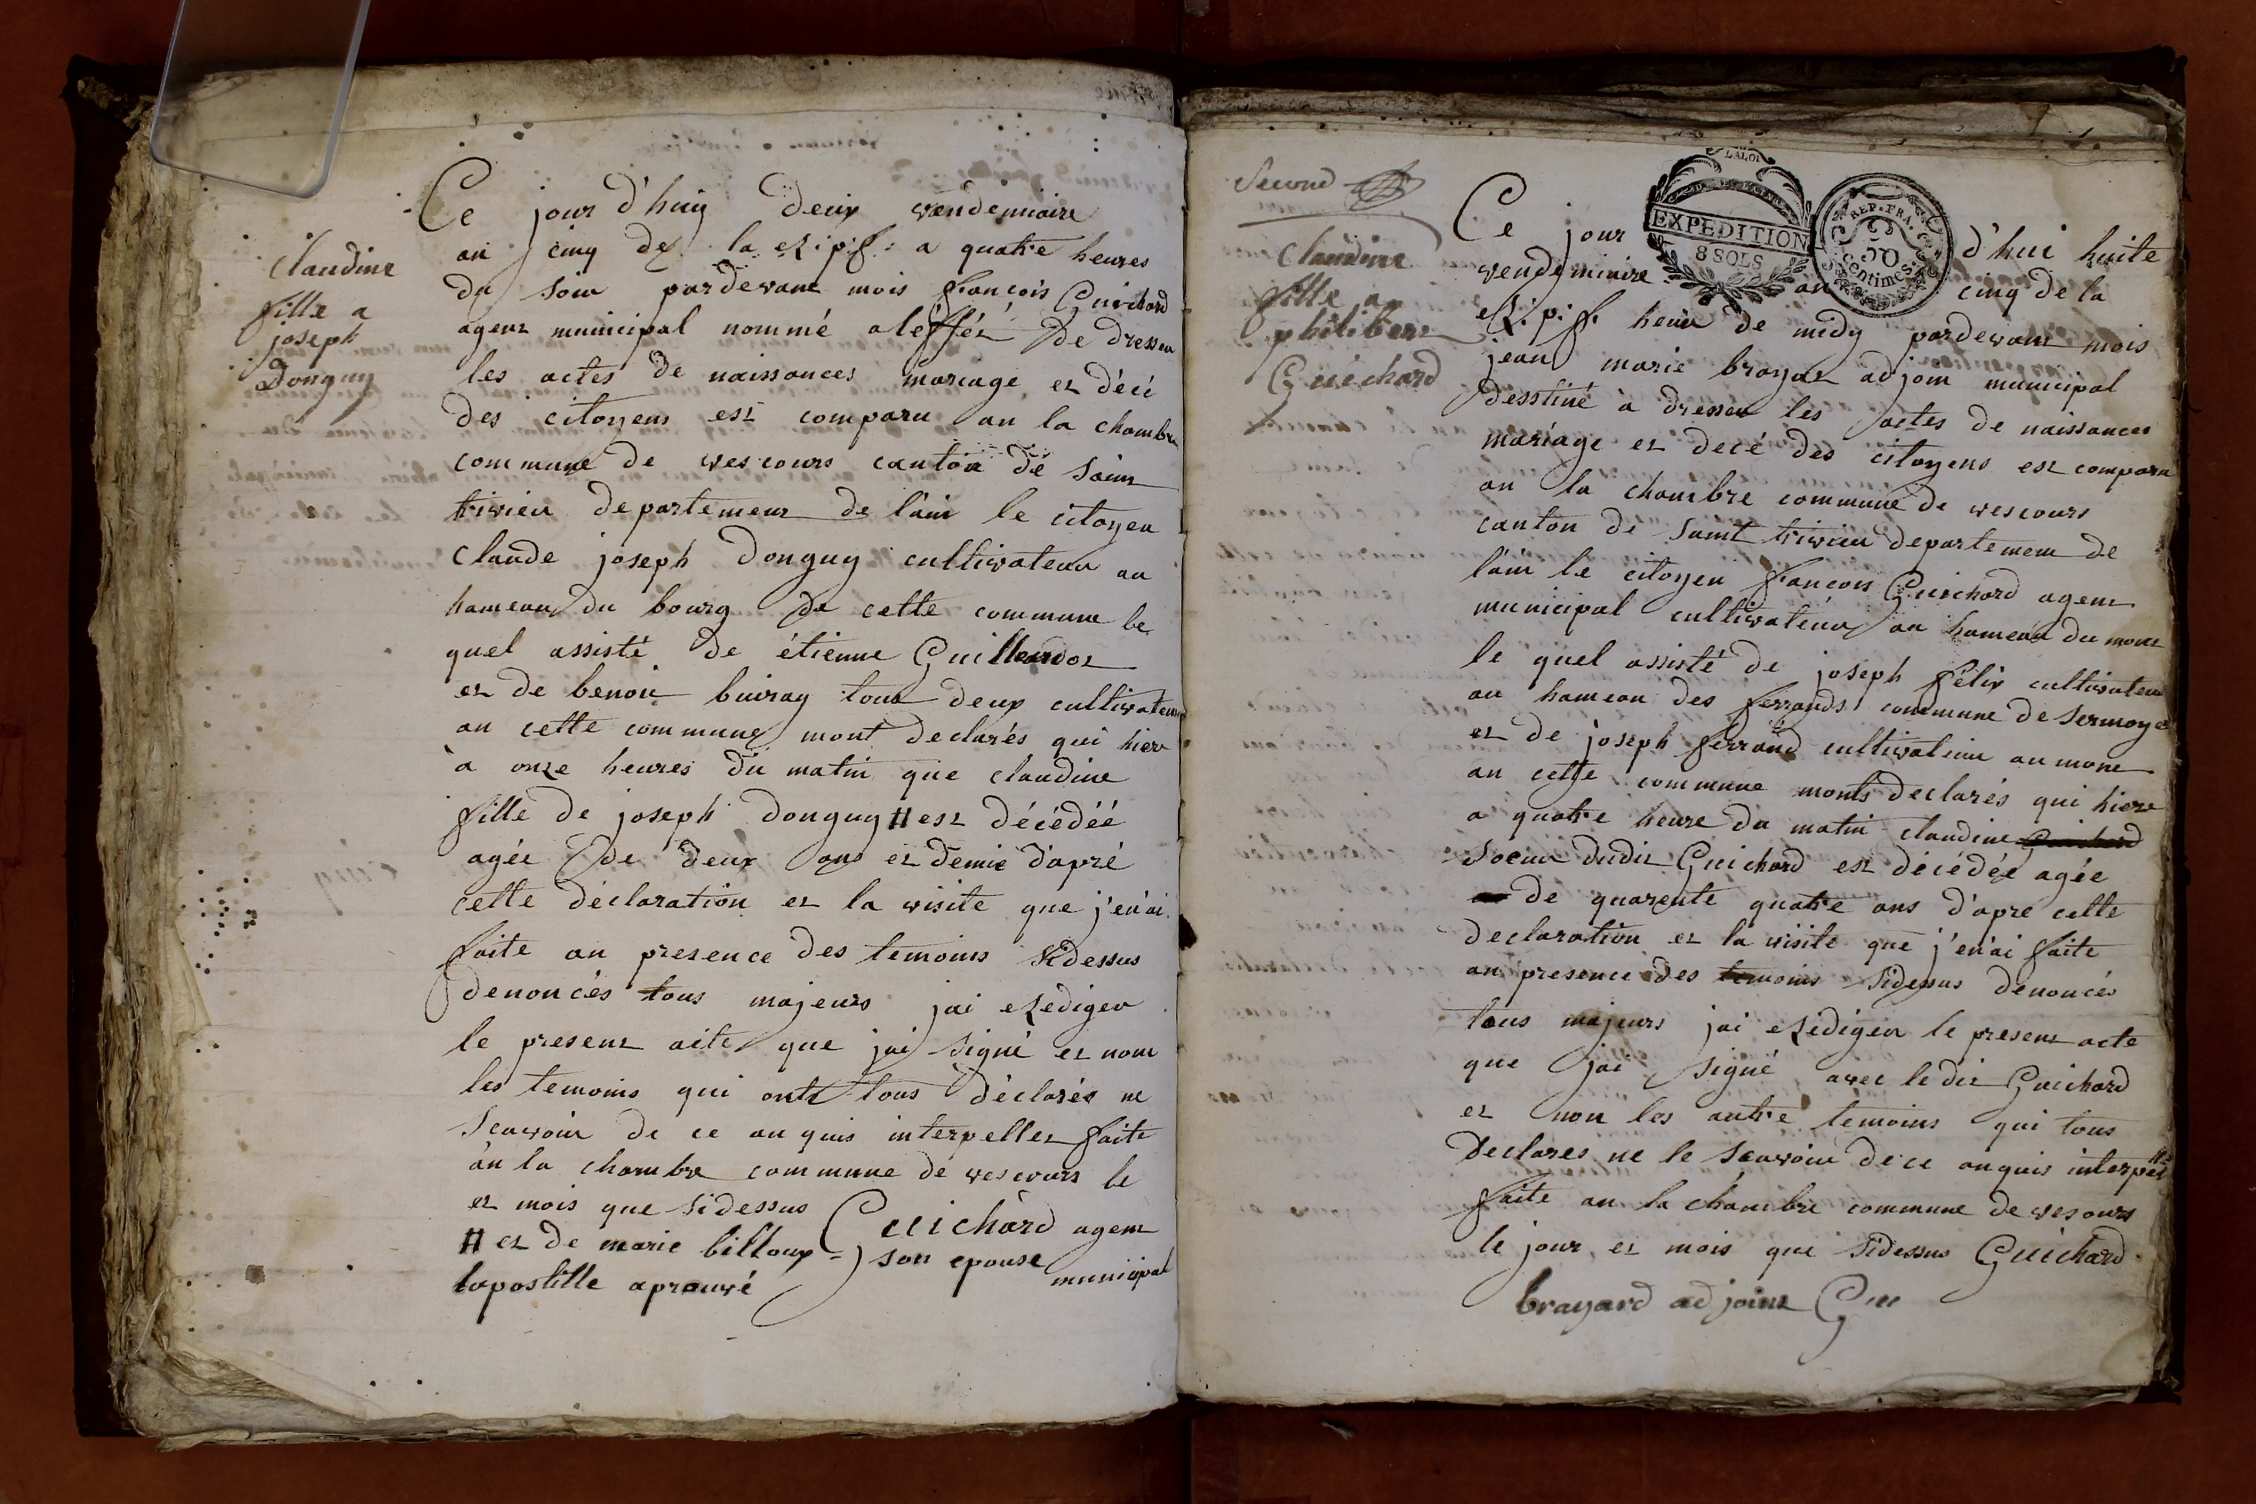 Claudine
fille a
joseph
Donguy
Ce jour d'huy deux vendemiaire
an cinq de la R. p. f. a quatre heures
du soir pardevant mois francois Guichard
agent municipal nommé a léffét De dresser
les actes de naissances mariage et décé
des citoyens est comparu an la chambre
commune de vescours canton de saint
trivier departement de lain le citoyen
Claude joseph Donguy cultivateur au
hameau du bourg de cette commune le
quel assisté de étienne Guillardot
et de benoit buiray tous deux cultivateurs
an cette commune mont declarés qui hierre
à onze heures du matin que claudine
fille de joseph donguy # est décédéé
agée de deux ans et demie d'apré
cette déclaration et la visite que j'en'ai
faite an presence des temoins sidessus
denoncés tous majeurs jai Rediger
le present acte que jai signé et nom
les temoins qui onts tous déclarés ne
scavoir de ce an quis interpeller faite
an la chambre commune de vescours le
et mois que sidessus Guichard agent
municipal
# et de marie billoux = son epouse
lapostille aprouvé
Second
Claudine
fille a
philibert
Guichard
LA LOI
EXPEDITION
8 SOLS
REP. FRA.
50
centimes
Ce jour d'hui huite
vendeminire an cinq de la
R. p. f. heure de midy pardevant mois
jean marie brayat adjoin municipal
desstiné à dresser les actes de naissances
mariage et decé des citoyens est comparu
an la chambre commune de vescours
canton de saint trivier departement de
lain le citoyen francois Guichard agent
municipal cultivateur au hameau du mont
le quel assisté de joseph félix cultivateur
au hameau des ferrands commune de sermoyé
et de joseph ferrand cultivateur au mont
an cette commune monts declarés qui hiere
a quatre heure du matin claudine Guichard
Soeur dudit Guichard est décédée agée
de quarente quatre ans d'apre cette
declaration et la visite que j'en'ai faite
an presence des temoins sidessus denoncés
tous majeurs jai Rediger le present acte
que jai signé avec le dit Guichard
et non les autre temoins qui tous
Declares ne le scavoir de ce anquis interpeller
faite an la chambre commune de vesours
le jour et mois que sidessus Guichard
brayard adjoint Gui